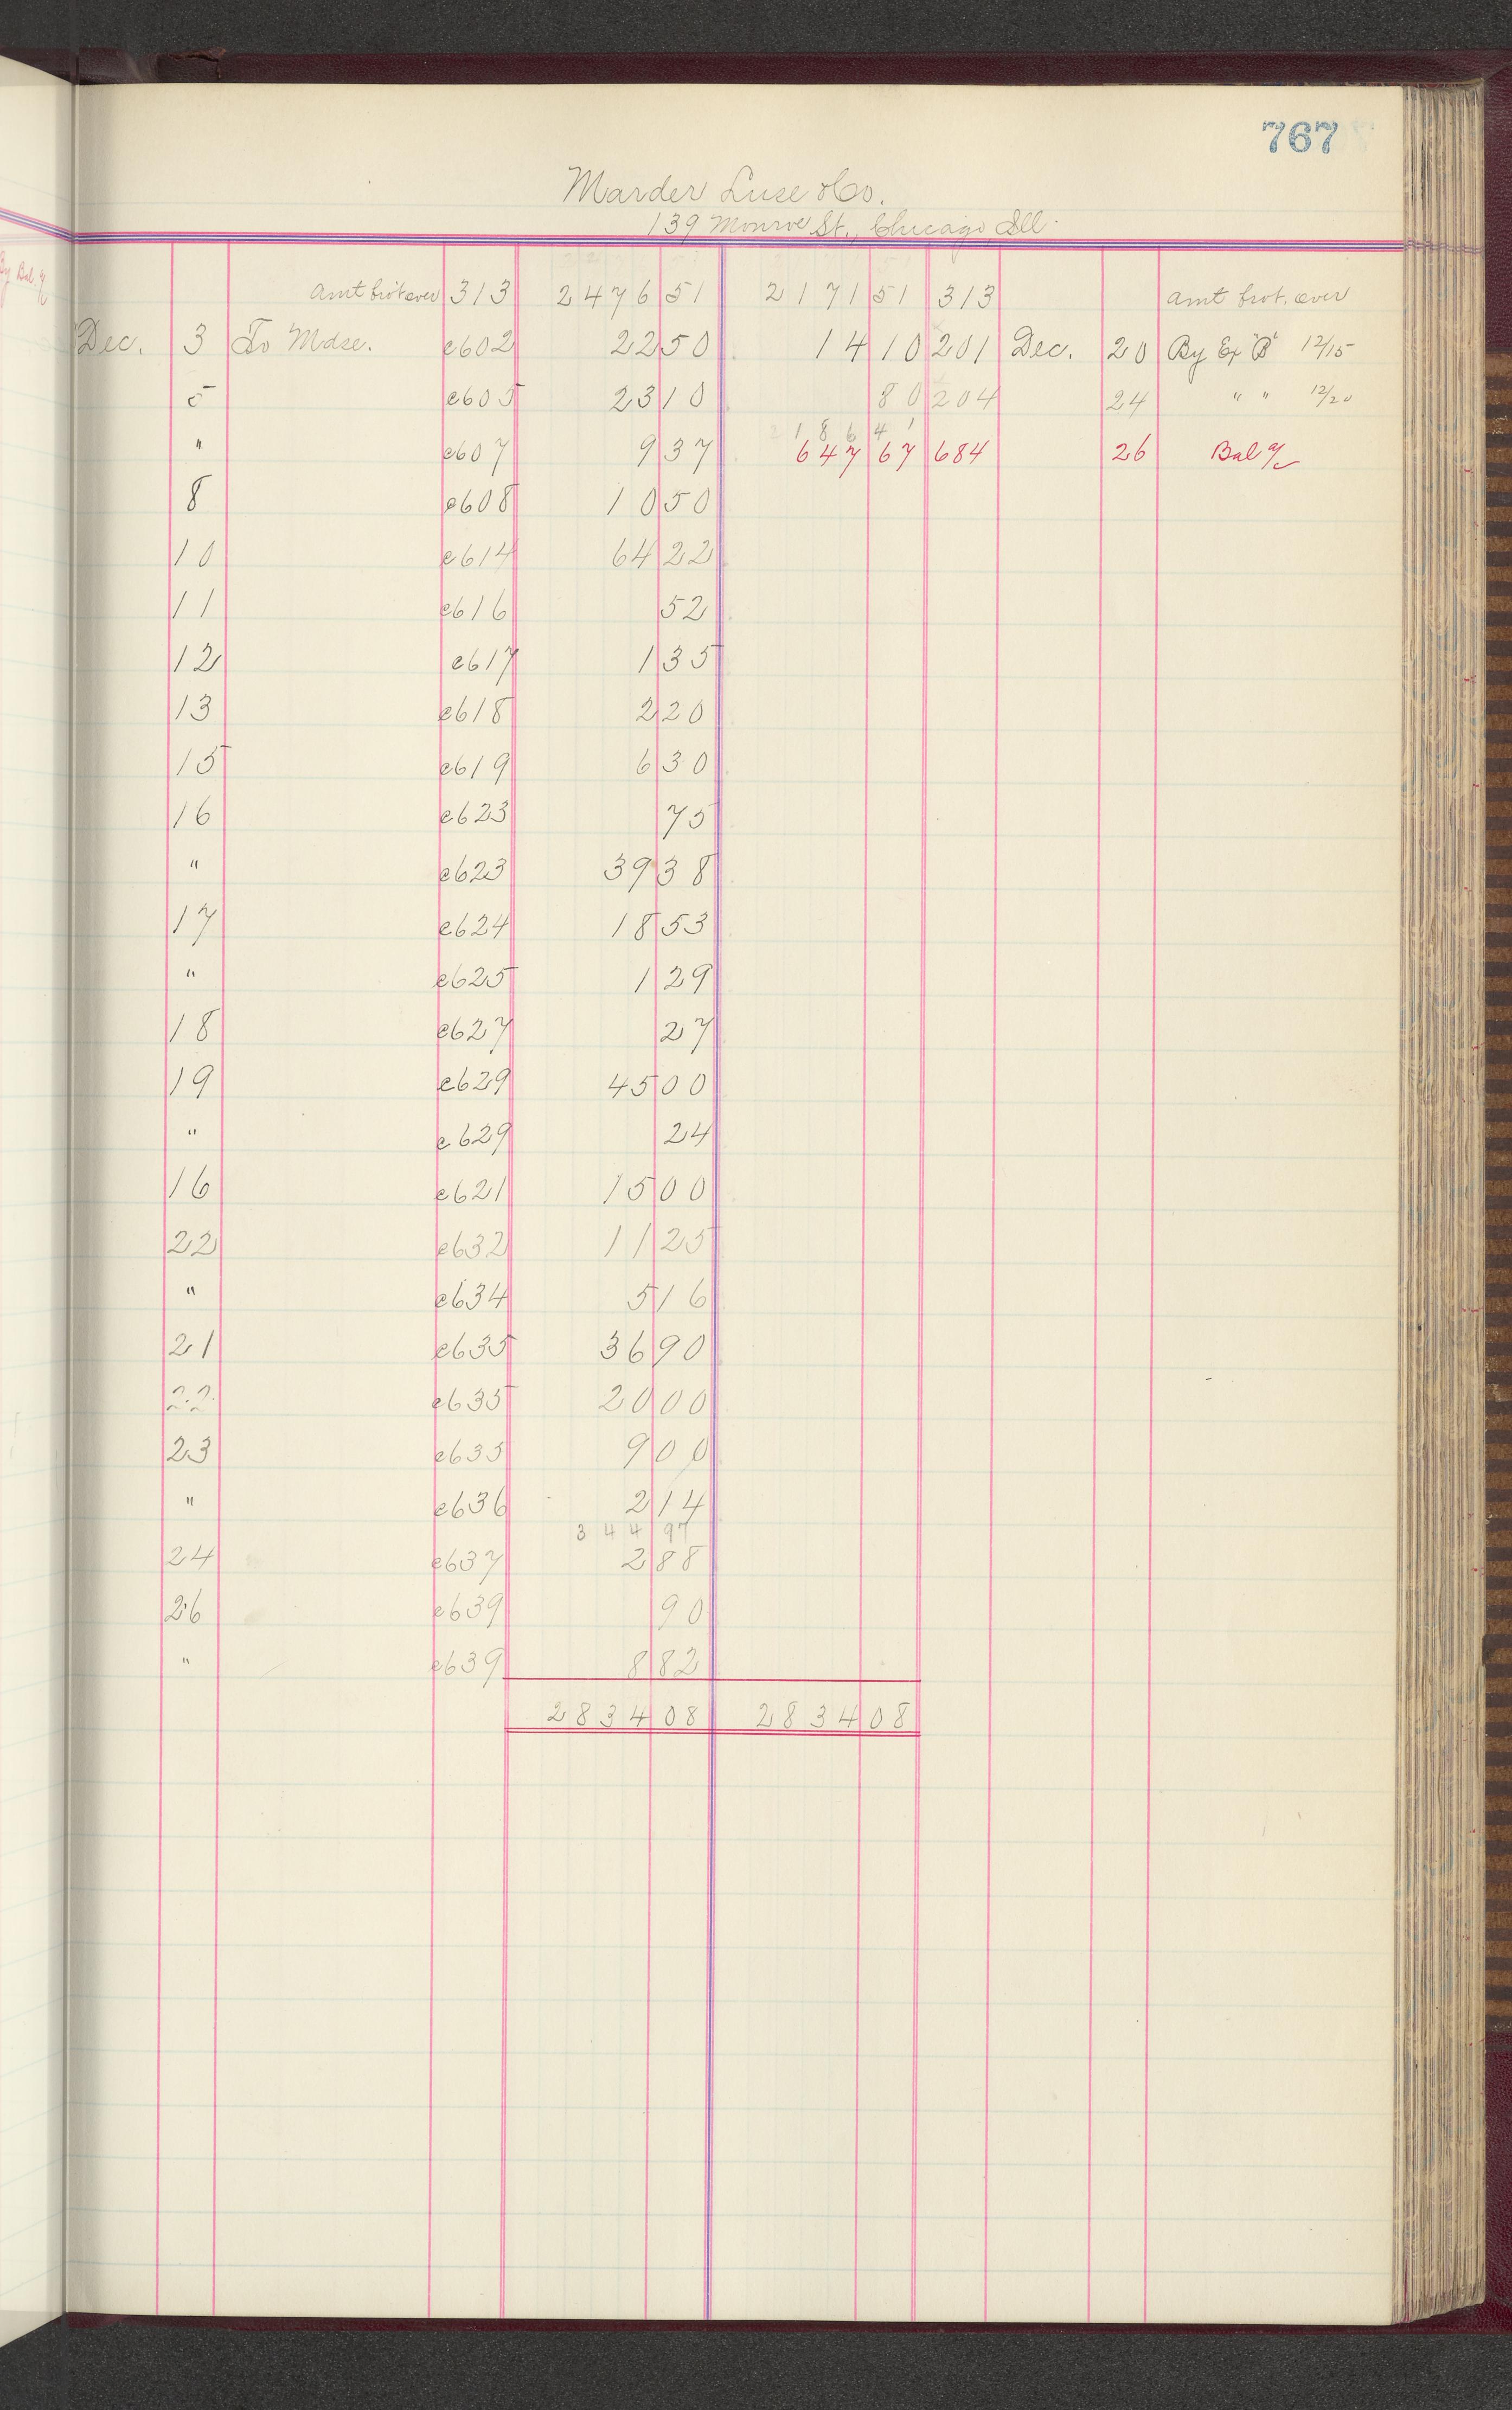 767
Marder Luse & Co.
139 Monroe St., Chicago Ill.
By Bal. %
amt brot over 313 2476 51 2171 51 313 amt brot. over
Dec. 3 To Mdse. e602 22 50 14 10 201 Dec. 20 By Ex "B" 12/15
5 e605 23 10 80 204 24 " " 12/20
2186 41
" e607 9 37 647 67 684 26 Bal %
8 e608 10 50
10 e614 64 22
11 e616 52
12 e617 1 35
13 e618 2 20
15 e619 6 30
16 e623 75
" e623 39 38
17 e624 18 53
" e625 1 29
18 e627 27
19 e629 45 00
" e629 24
16 e621 15 00
22 e632 11 25
" e634 5 16
21 e635 36 90
22 e635 20 00
23 e635 9 00
" e636 2 14
344 97
24 e637 2 88
26 e639 90
" e639 8 82
2834 08 2834 08